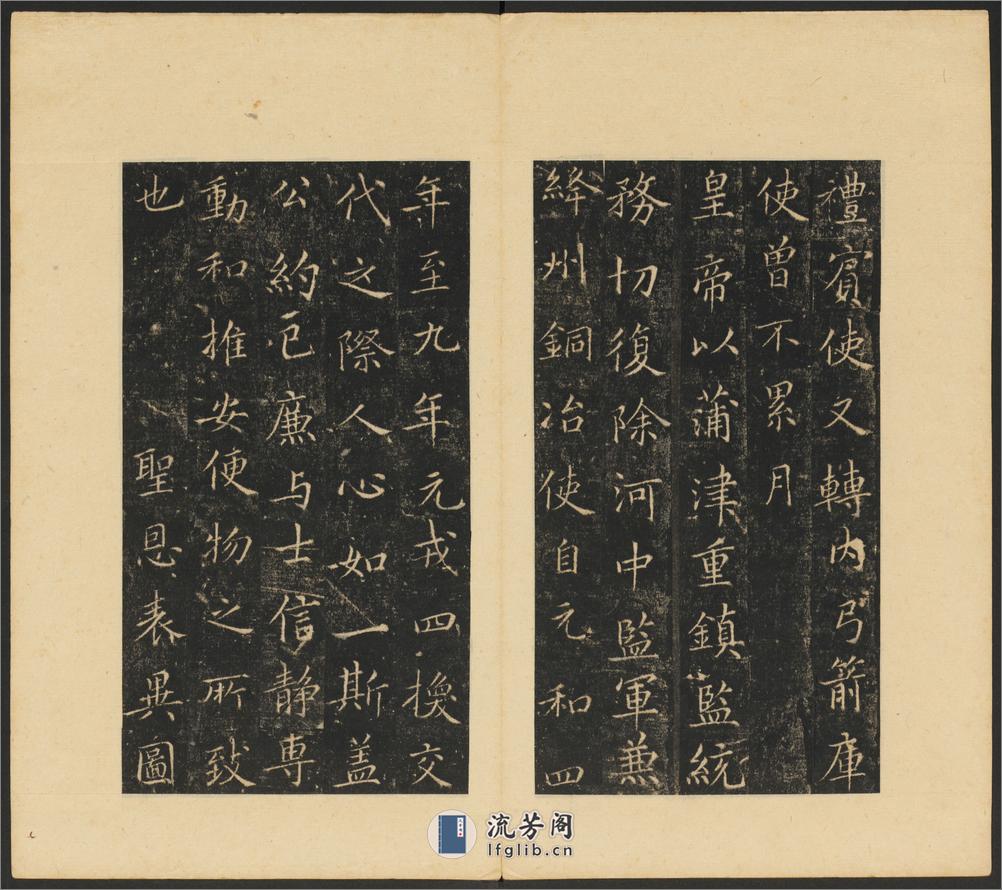 禮賓使又轉内弓箭庫
使曾不累月
皇帝以蒲津重鎮監統
務切復除河中監軍兼
絳州銅冶使自元和四
年至九年元戎四換交
代之際人心如一斯盖
公約己廉与士信静專
動和推安便物之所致
也 聖恩表異圖
流芳阁
lfglib.cn